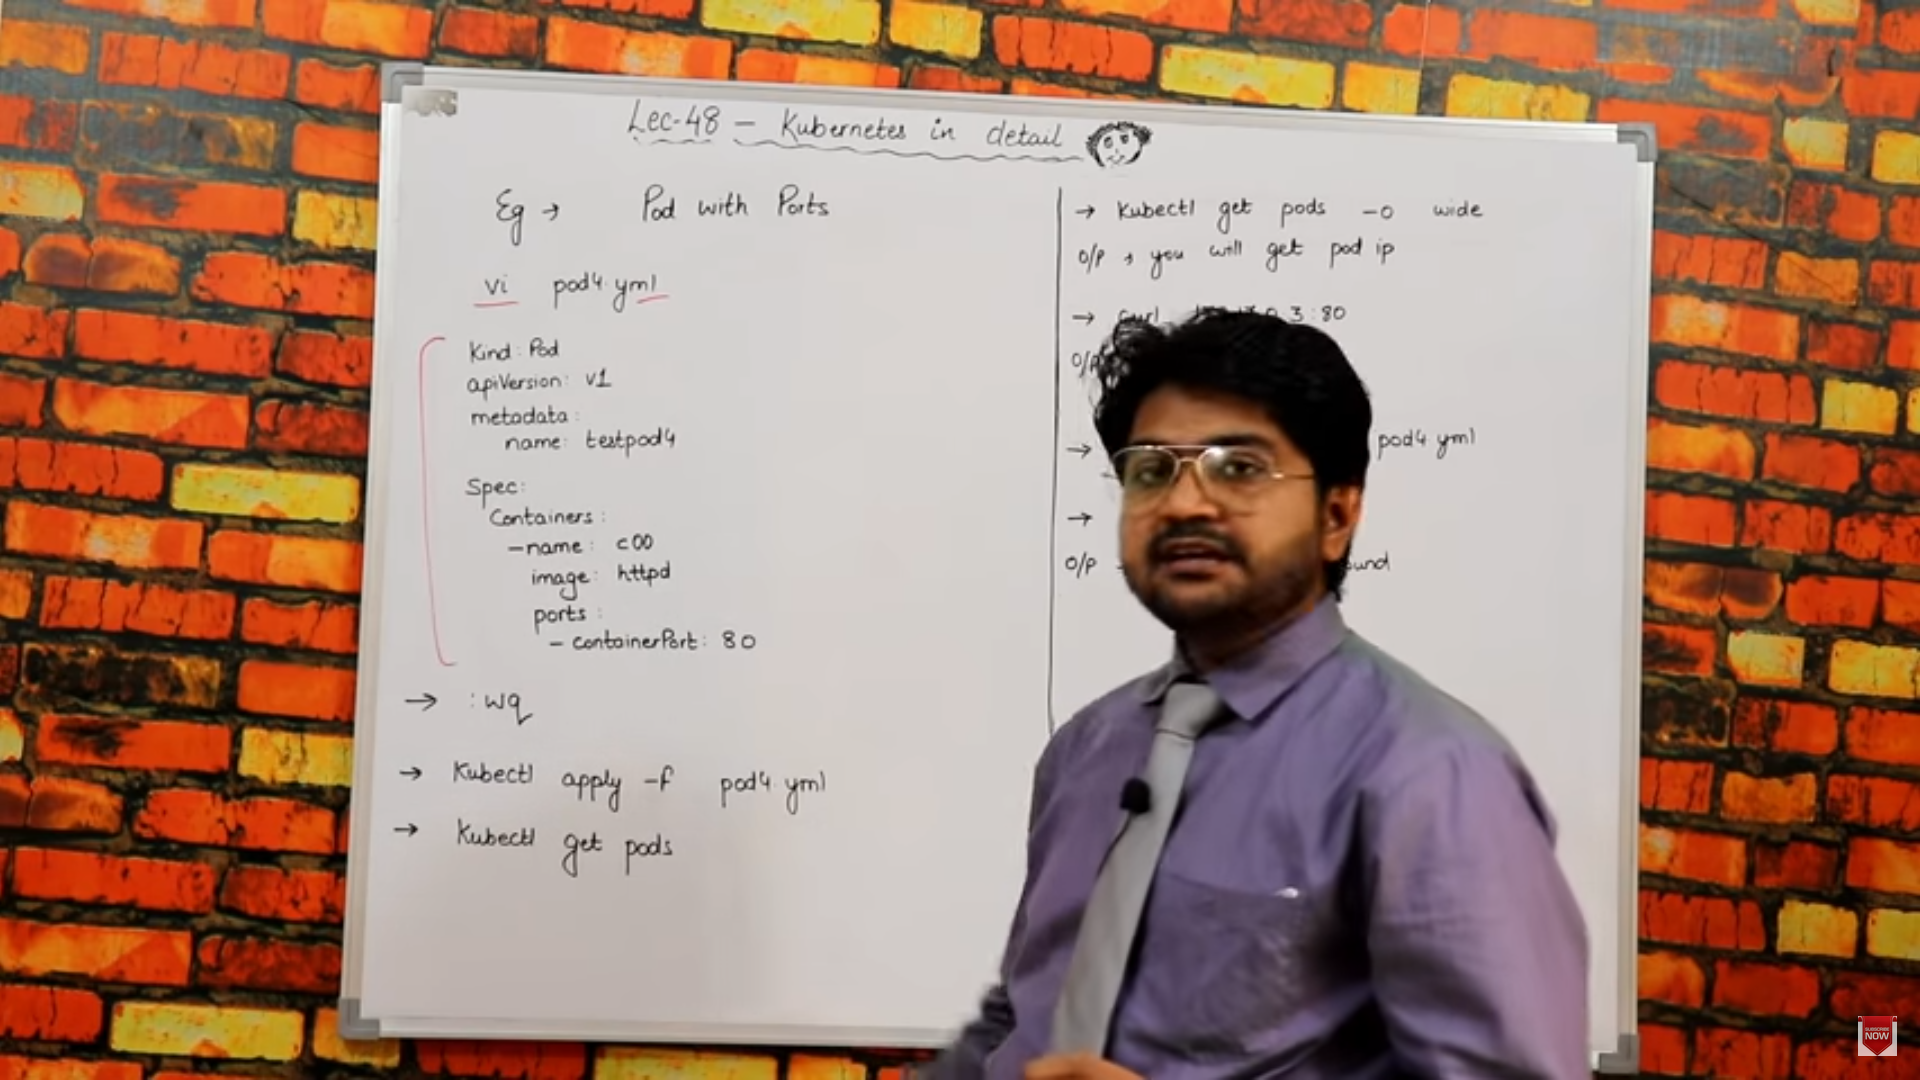 Lec-48 - Kubernetes in detail
Eg → Pod with Ports
vi pod4.yml
Kind: Pod
apiVersion: v1
metadata:
name: testpod4
Spec:
Containers:
- name: c00
image: httpd
ports:
- containerPort: 80
→ :wq
→ Kubectl apply -f pod4.yml
→ Kubectl get pods
→ Kubectl get pods -o wide
O/P → you will get pod ip
→ curl 3:80
O/P
→ pod4.yml
→
O/P
SUBSCRIBE
NOW